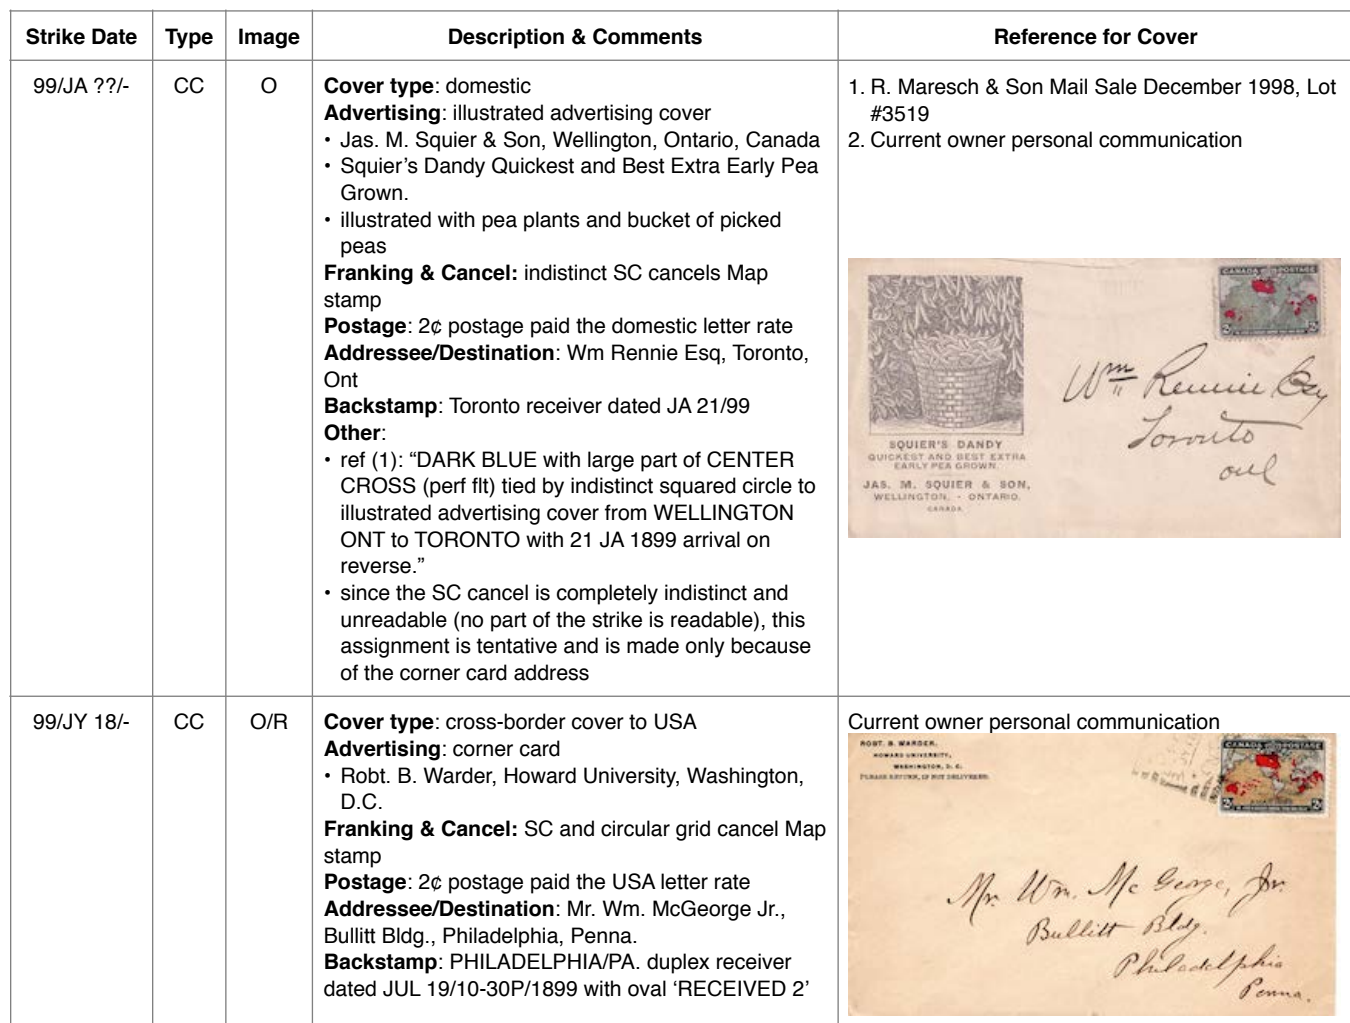 Strike Date Type Image Description & Comments Reference for Cover
99/JA ??/- CC O
Cover type: domestic
Advertising: illustrated advertising cover
• Jas. M. Squier & Son, Wellington, Ontario, Canada
• Squier’s Dandy Quickest and Best Extra Early Pea
Grown.
• illustrated with pea plants and bucket of picked
peas
Franking & Cancel: indistinct SC cancels Map
stamp
Postage: 2¢ postage paid the domestic letter rate
Addressee/Destination: Wm Rennie Esq, Toronto,
Ont
Backstamp: Toronto receiver dated JA 21/99
Other:
• ref (1): “DARK BLUE with large part of CENTER
CROSS (perf flt) tied by indistinct squared circle to
illustrated advertising cover from WELLINGTON
ONT to TORONTO with 21 JA 1899 arrival on
reverse.”
• since the SC cancel is completely indistinct and
unreadable (no part of the strike is readable), this
assignment is tentative and is made only because
of the corner card address
1. R. Maresch & Son Mail Sale December 1998, Lot
#3519
2. Current owner personal communication
CANADA POSTAGE
Wm Rennie Esq
Toronto
Ont
SQUIER'S DANDY
QUICKEST AND BEST EXTRA
EARLY PEA GROWN.
JAS. M. SQUIER & SON,
WELLINGTON, - ONTARIO.
CANADA.
99/JY 18/- CC O/R
Cover type: cross-border cover to USA
Advertising: corner card
• Robt. B. Warder, Howard University, Washington,
D.C.
Franking & Cancel: SC and circular grid cancel Map
stamp
Postage: 2¢ postage paid the USA letter rate
Addressee/Destination: Mr. Wm. McGeorge Jr.,
Bullitt Bldg., Philadelphia, Penna.
Backstamp: PHILADELPHIA/PA. duplex receiver
dated JUL 19/10-30P/1899 with oval ‘RECEIVED 2’
Current owner personal communication
ROBT. B. WARDER,
HOWARD UNIVERSITY,
WASHINGTON, D. C.
PLEASE RETURN, IF NOT DELIVERED.
CANADA POSTAGE
Mr. Wm. Mc George, Jr.
Bullitt Bldg.
Philadelphia
Penna.